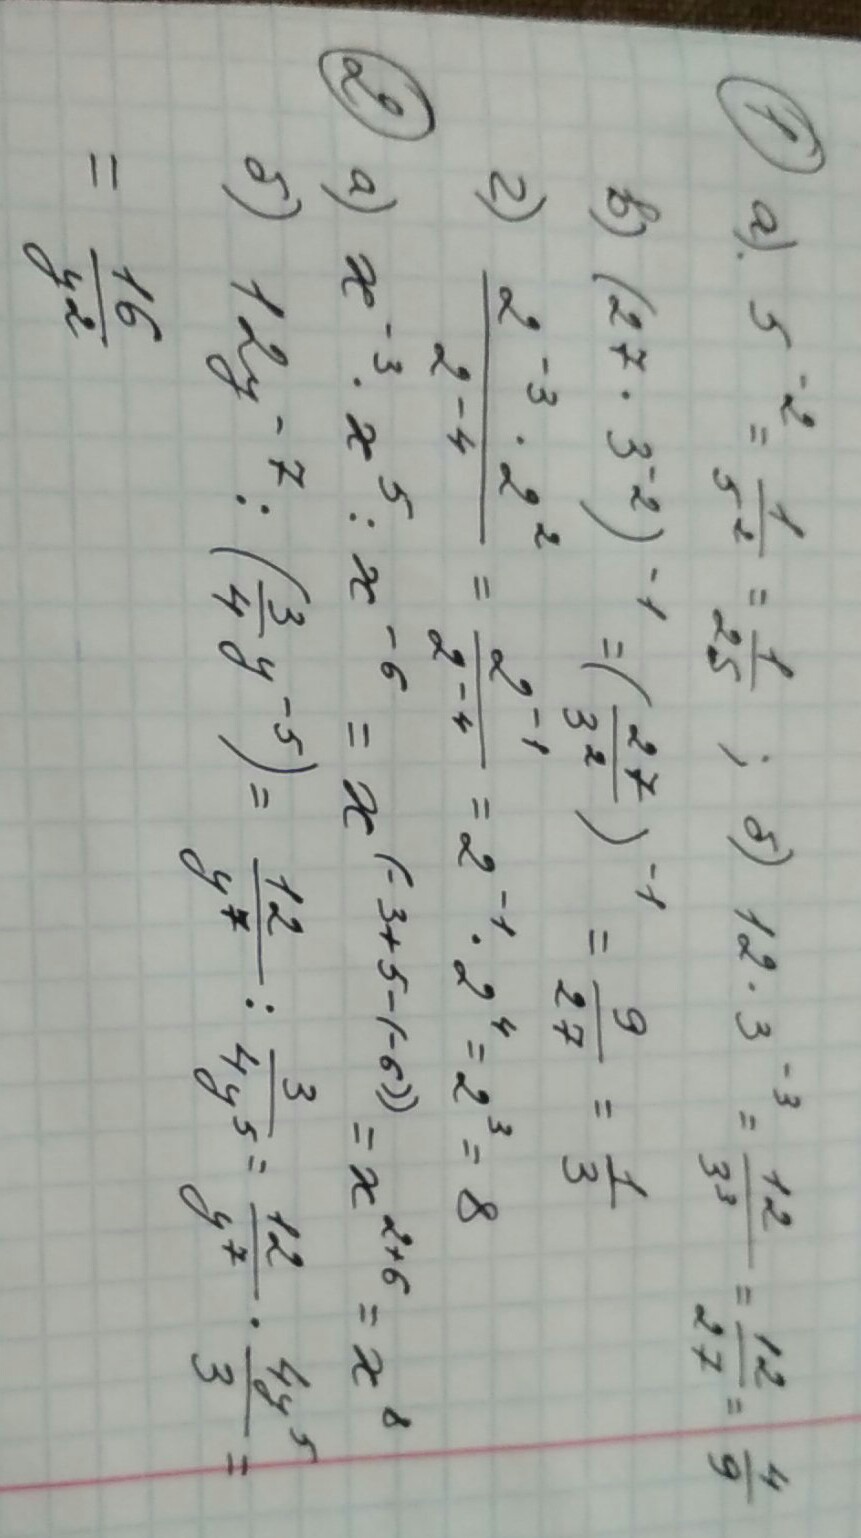 ① а). 5⁻² = 1/5² = 1/25 ; б) 12·3⁻³ = 12/3³ = 12/27 = 4/9
в) (27·3⁻²)⁻¹ = (27/3²)⁻¹ = 9/27 = 1/3
г) (2⁻³·2²)/2⁻⁴ = 2⁻¹/2⁻⁴ = 2⁻¹·2⁴ = 2³ = 8
② а) x⁻³·x⁵ : x⁻⁶ = x^(-3+5-(-6)) = x²⁺⁶ = x⁸
б) 12y⁻⁷ : (3/4 y⁻⁵) = 12/y⁷ : 3/4y⁵ = 12/y⁷ · 4y⁵/3 =
= 16/y²